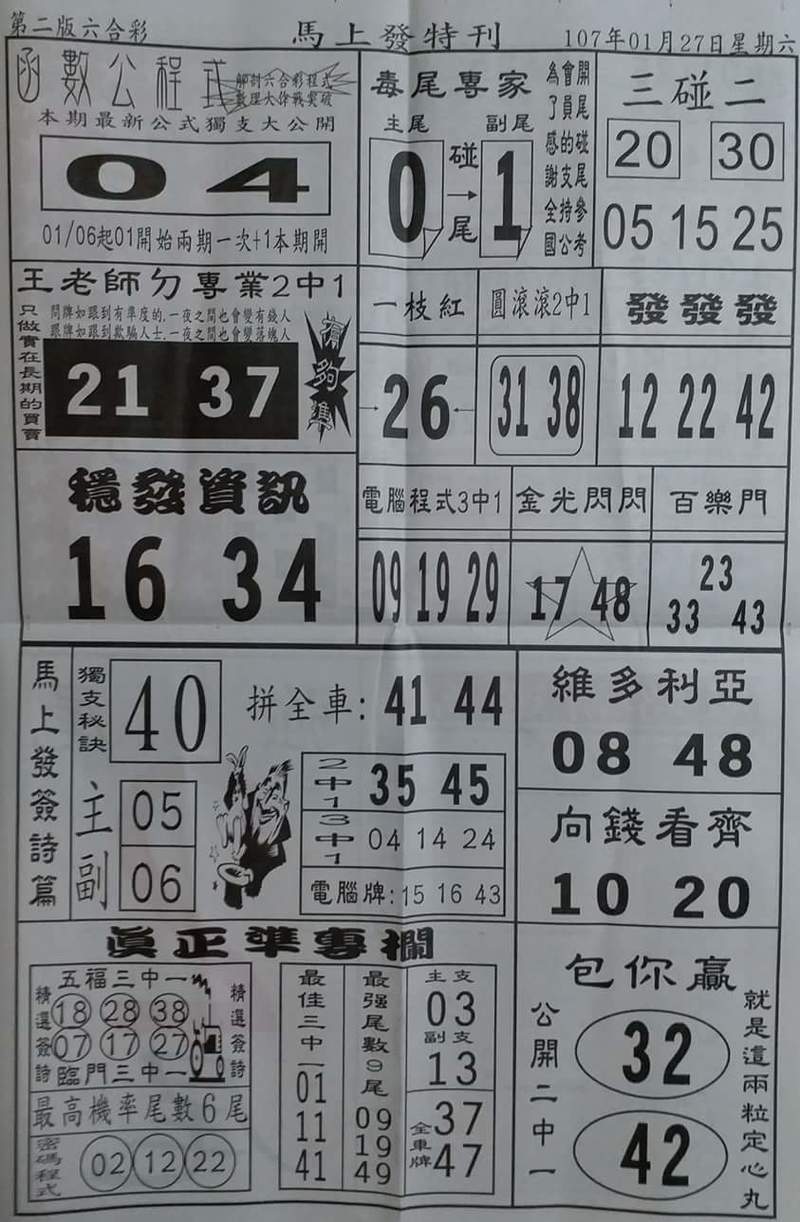 第二版六合彩
馬上發特刊
107年01月27日星期六
函數公程式
解討六合彩程式
數理大作戰突破
本期最新公式獨支大公開
04
01/06起01開始兩期一次+1本期開
毒尾專家
主尾 副尾
0 碰→尾 1
開尾碰尾參考
會員的支持公
為了感謝全國
三碰二
20 30
05 15 25
王老師ㄉ專業2中1
只做實在長期的買賣
問牌如跟到有準度的.一夜之間也會變有錢人
跟牌如跟到欺騙人士.一夜之間也會變落魄人
21 37
有夠準
一枝紅
→26←
圓滾滾2中1
31 38
發發發
12 22 42
穩發資訊
16 34
電腦程式3中1
09 19 29
金光閃閃
17 48
百樂門
23
33 43
馬上發簽詩篇
獨支秘訣
40
拼全車: 41 44
主 05
副 06
2中1 35 45
3中1 04 14 24
電腦牌:15 16 43
維多利亞
08 48
向錢看齊
10 20
真正準專欄
五福三中一
精選簽詩
18 28 38
07 17 27
精選簽詩
臨門三中一
最高機率尾數6尾
密碼程式
02 12 22
最佳三中一
01
11
41
最强尾數9尾
09
19
49
主支
03
副支
13
全車牌
37
47
包你贏
公開二中一
32
42
就是這兩粒定心丸